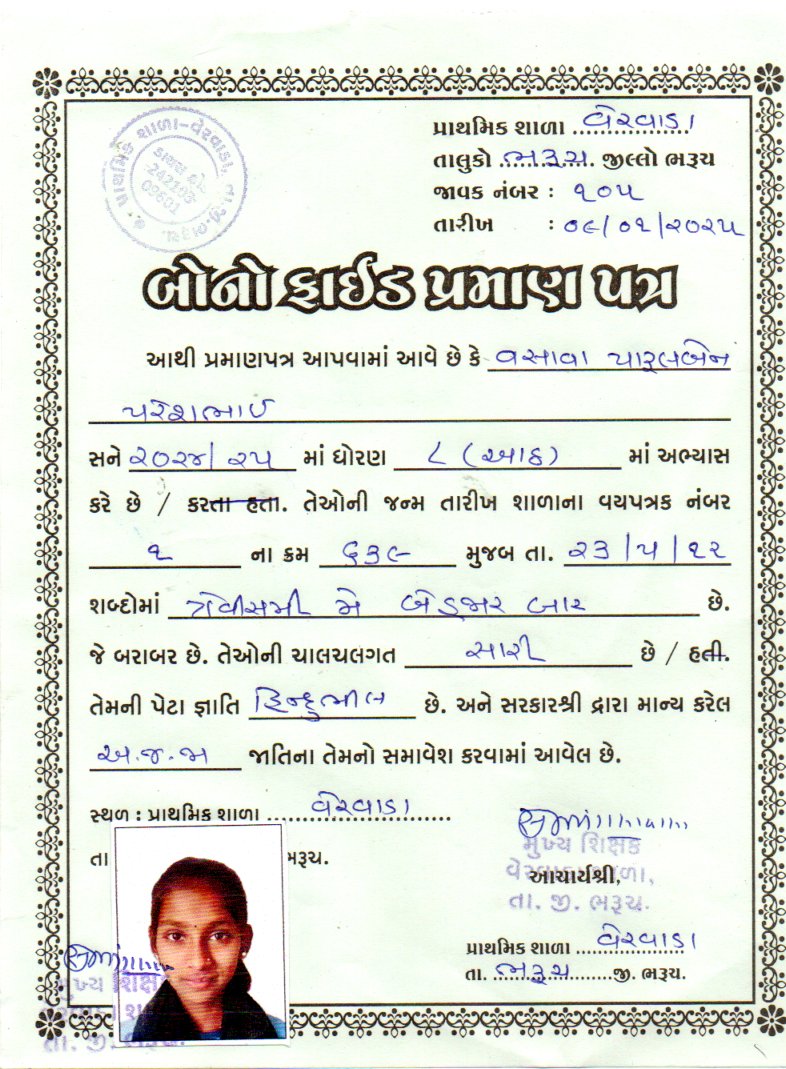 પ્રાથમિક શાળા-વેરવાડા, તા.જી.ભરૂચ.
ડાયસ કોડ
242103-
00601
પ્રાથમિક શાળા વેરવાડા
તાલુકો ભરૂચ. જીલ્લો ભરૂચ
જાવક નંબર : ૧૦૫
તારીખ : ૦૯/૦૧/૨૦૨૫
બોનોફાઈડ પ્રમાણ પત્ર
આથી પ્રમાણપત્ર આપવામાં આવે છે કે વસાવા પારૂલબેન
પરેશભાઈ
સને ૨૦૨૪/૨૫ માં ધોરણ ૮ (આઠ) માં અભ્યાસ
કરે છે / કરતા હતા. તેઓની જન્મ તારીખ શાળાના વયપત્રક નંબર
૧ ના ક્રમ ૬૩૯ મુજબ તા. ૨૩/૫/૧૨
શબ્દોમાં ત્રેવીસમી મે બેહજાર બાર છે.
જે બરાબર છે. તેઓની ચાલચલગત સારી છે / હતી.
તેમની પેટા જ્ઞાતિ હિન્દુભીલ છે. અને સરકારશ્રી દ્વારા માન્ય કરેલ
અ.જ.જા જાતિના તેમનો સમાવેશ કરવામાં આવેલ છે.
સ્થળ : પ્રાથમિક શાળા વેરવાડા
તા ભરૂચ.
મુખ્ય શિક્ષક
આચાર્યશ્રી,
તા. જી. ભરૂચ.
પ્રાથમિક શાળા વેરવાડા
તા. ભરૂચ જી. ભરૂચ.
મુખ્ય શિક્ષ
તા. જી. ભરૂચ.